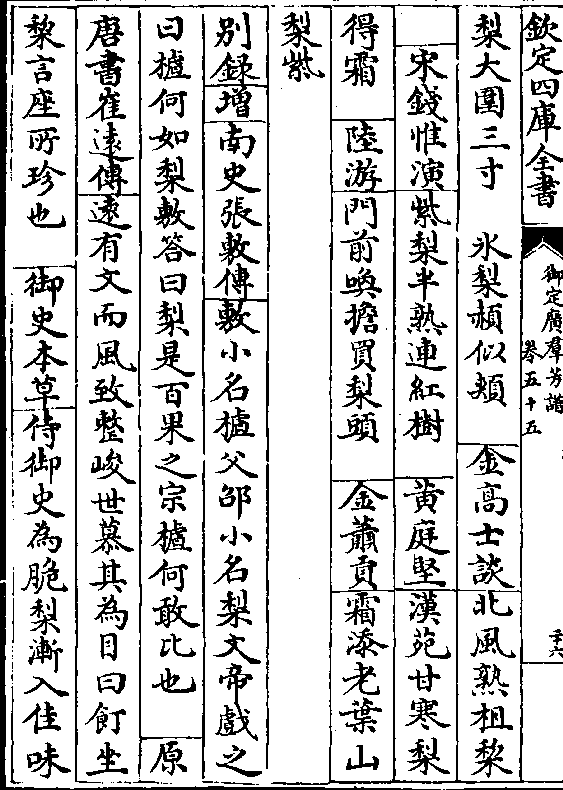 欽定四庫全書
御定廣羣芳譜
卷五十五
二十六
梨大圍三寸　氷梨頳似頰　金高士談北風熟柤棃
宋錢惟演紫梨半熟連紅樹　黄庭堅漢苑甘寒梨
得霜　陸游門前喚擔買梨頭　金蕭貢霜添老葉山
梨紫
别錄增南史張敷傳敷小名樝父邵小名梨文帝戲之
曰樝何如梨敷答曰梨是百果之宗樝何敢比也　原
唐書崔遠傳遠有文而風致整峻世慕其為目曰飣坐
棃言座所珍也　御史本草侍御史為脆梨漸入佳味